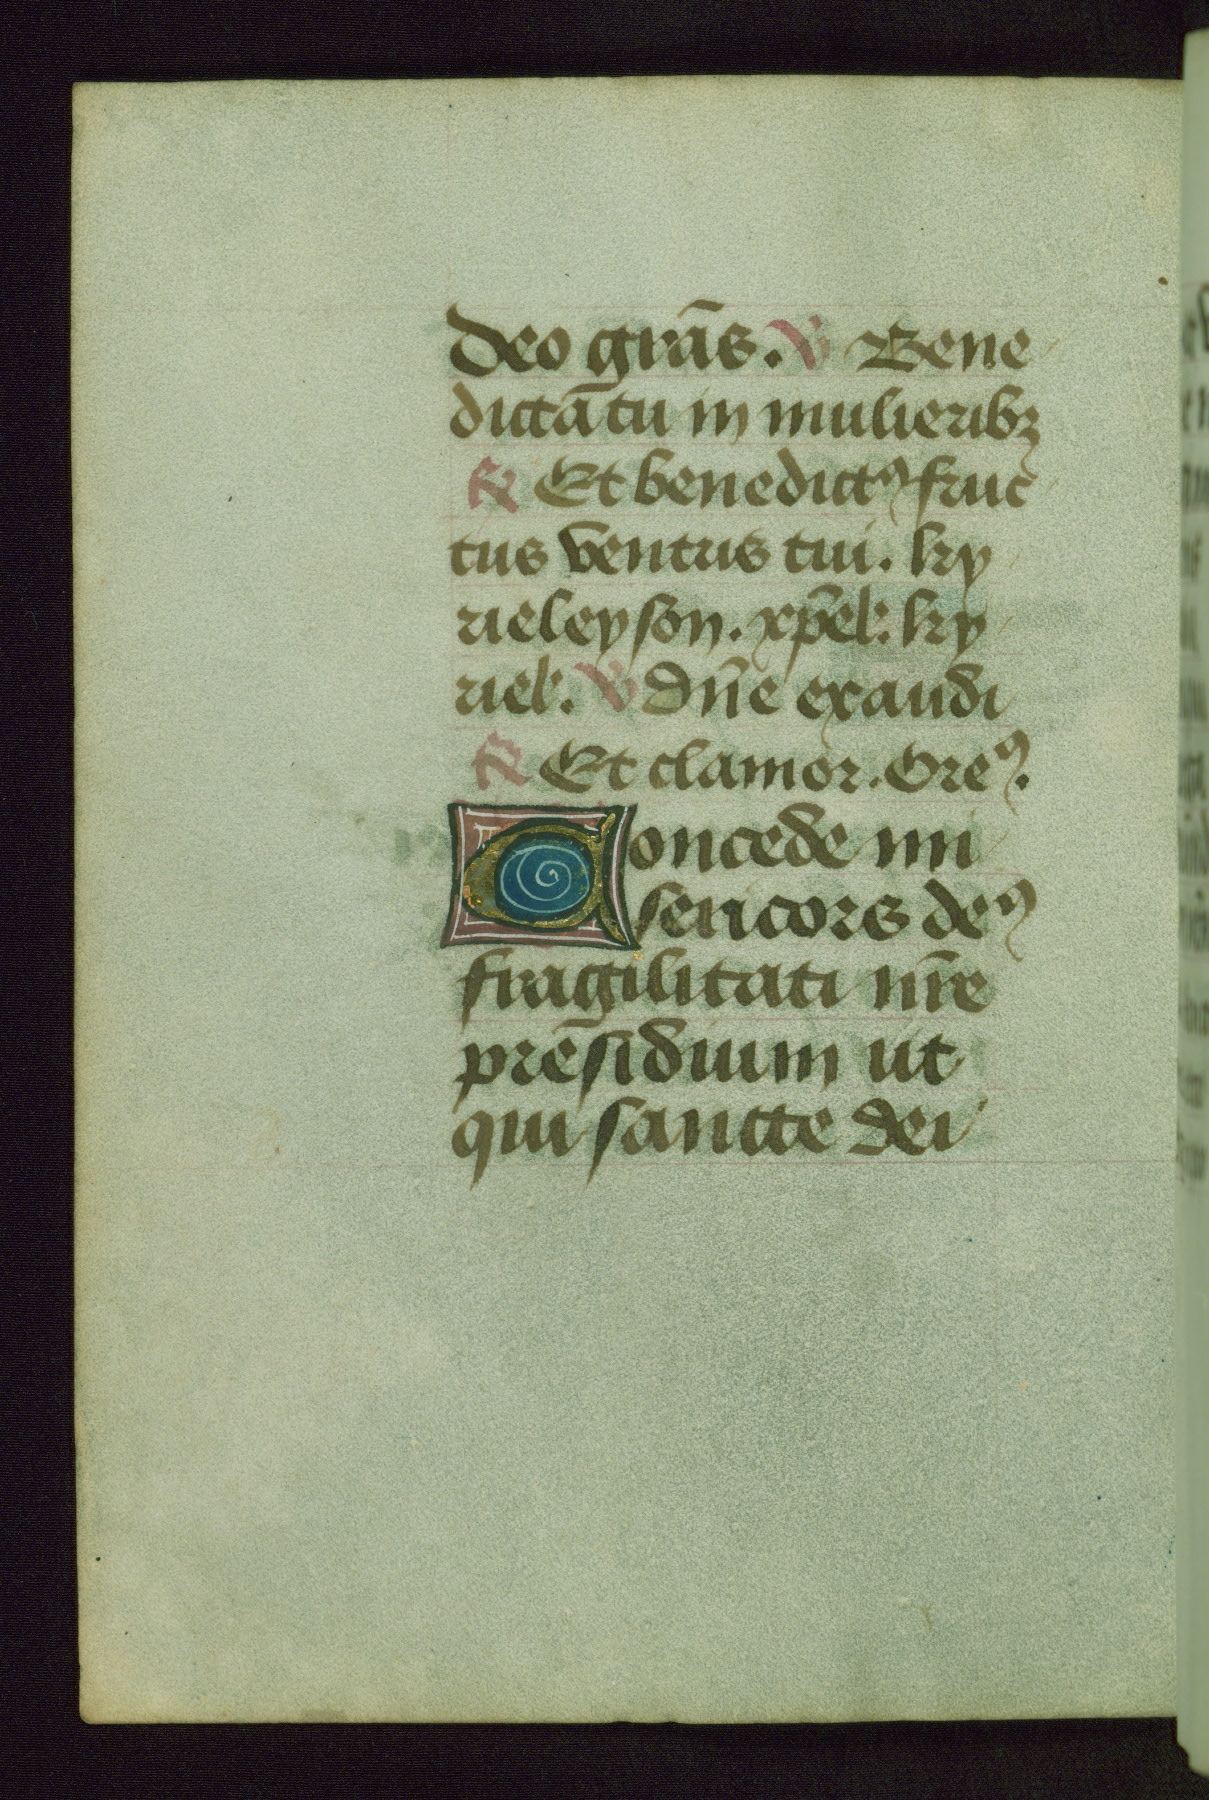 deo grās. ℣ Bene
dictā tu in mulieribꝫ
℟ Et benedictꝰ fruc
tus ventus tui. ky
rieleyson. xp̄el'. ky
riel'. ℣ Dn̄e exaudi
℟ Et clamor. Oremꝰ.
Concede mi
sericors deꝰ
fragilitati nr̄e
prēsidium ut
qui sancte dei